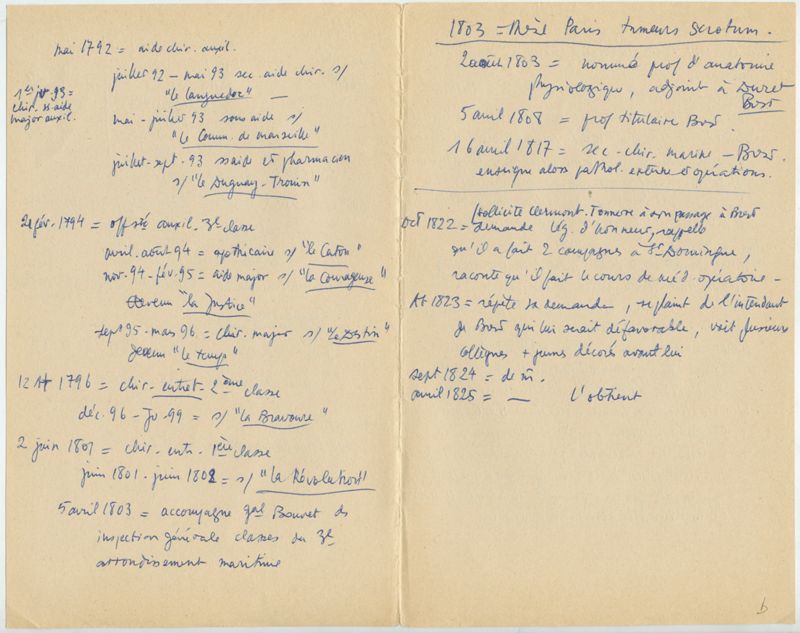 mai 1792 = aide chir. auxil.
juillet 92 - mai 93 sec. aide chir. s/
"Le Languedoc" —
1er jv. 93 =
chir. s/aide
major auxil.
mai - juillet 93 sous aide s/
"le Comm. de Marseille"
juillet-sept. 93 ss aide et pharmacien
s/ "le Duguay-Trouin"
fév. 1794 = off. sté auxil. 3e classe
avril-août 94 = apothicaire s/ "le Caton"
nov. 94 - fév. 95 = aide major s/ "la Courageuse"
devenu "la Justice"
sept 95 - mars 96 = chir. major s/ "le Destin"
devenu "le Temps"
12 1796 = chir. entret. 2ème classe
déc. 96 - jv 99 = s/ "la Bravoure"
2 juin 1801 = chir. entr. 1ère classe
juin 1801 - juin 1802 = s/ "la Révolution"
5 avril 1803 = accompagne gal Bouvet ds
inspection générale classes du 3e
arrondissement maritime
1803 = Thèse Paris tumeurs scrotum.
2 août 1803 = nommé prof d'anatomie
physiologique, adjoint à Duret
Brest
5 avril 1808 = prof titulaire Brest.
16 avril 1817 = sec. chir. marine - Brest.
enseigne alors pathol. externe et opérations.
(sollicite Clermont-Tonnerre à son passage à Brest
oct 1822 = demande lég. d'honneur, rappelle
qu'il a fait 2 campagnes à St Domingue,
raconte qu'il fait le cours de méd. opératoire -
1823 = répète sa demande, se plaint de l'intendant
de Brest qui lui serait défavorable, voit plusieurs
collègues + jeunes décorés avant lui
sept 1824 = de m.
avril 1825 = — l'obtient
b